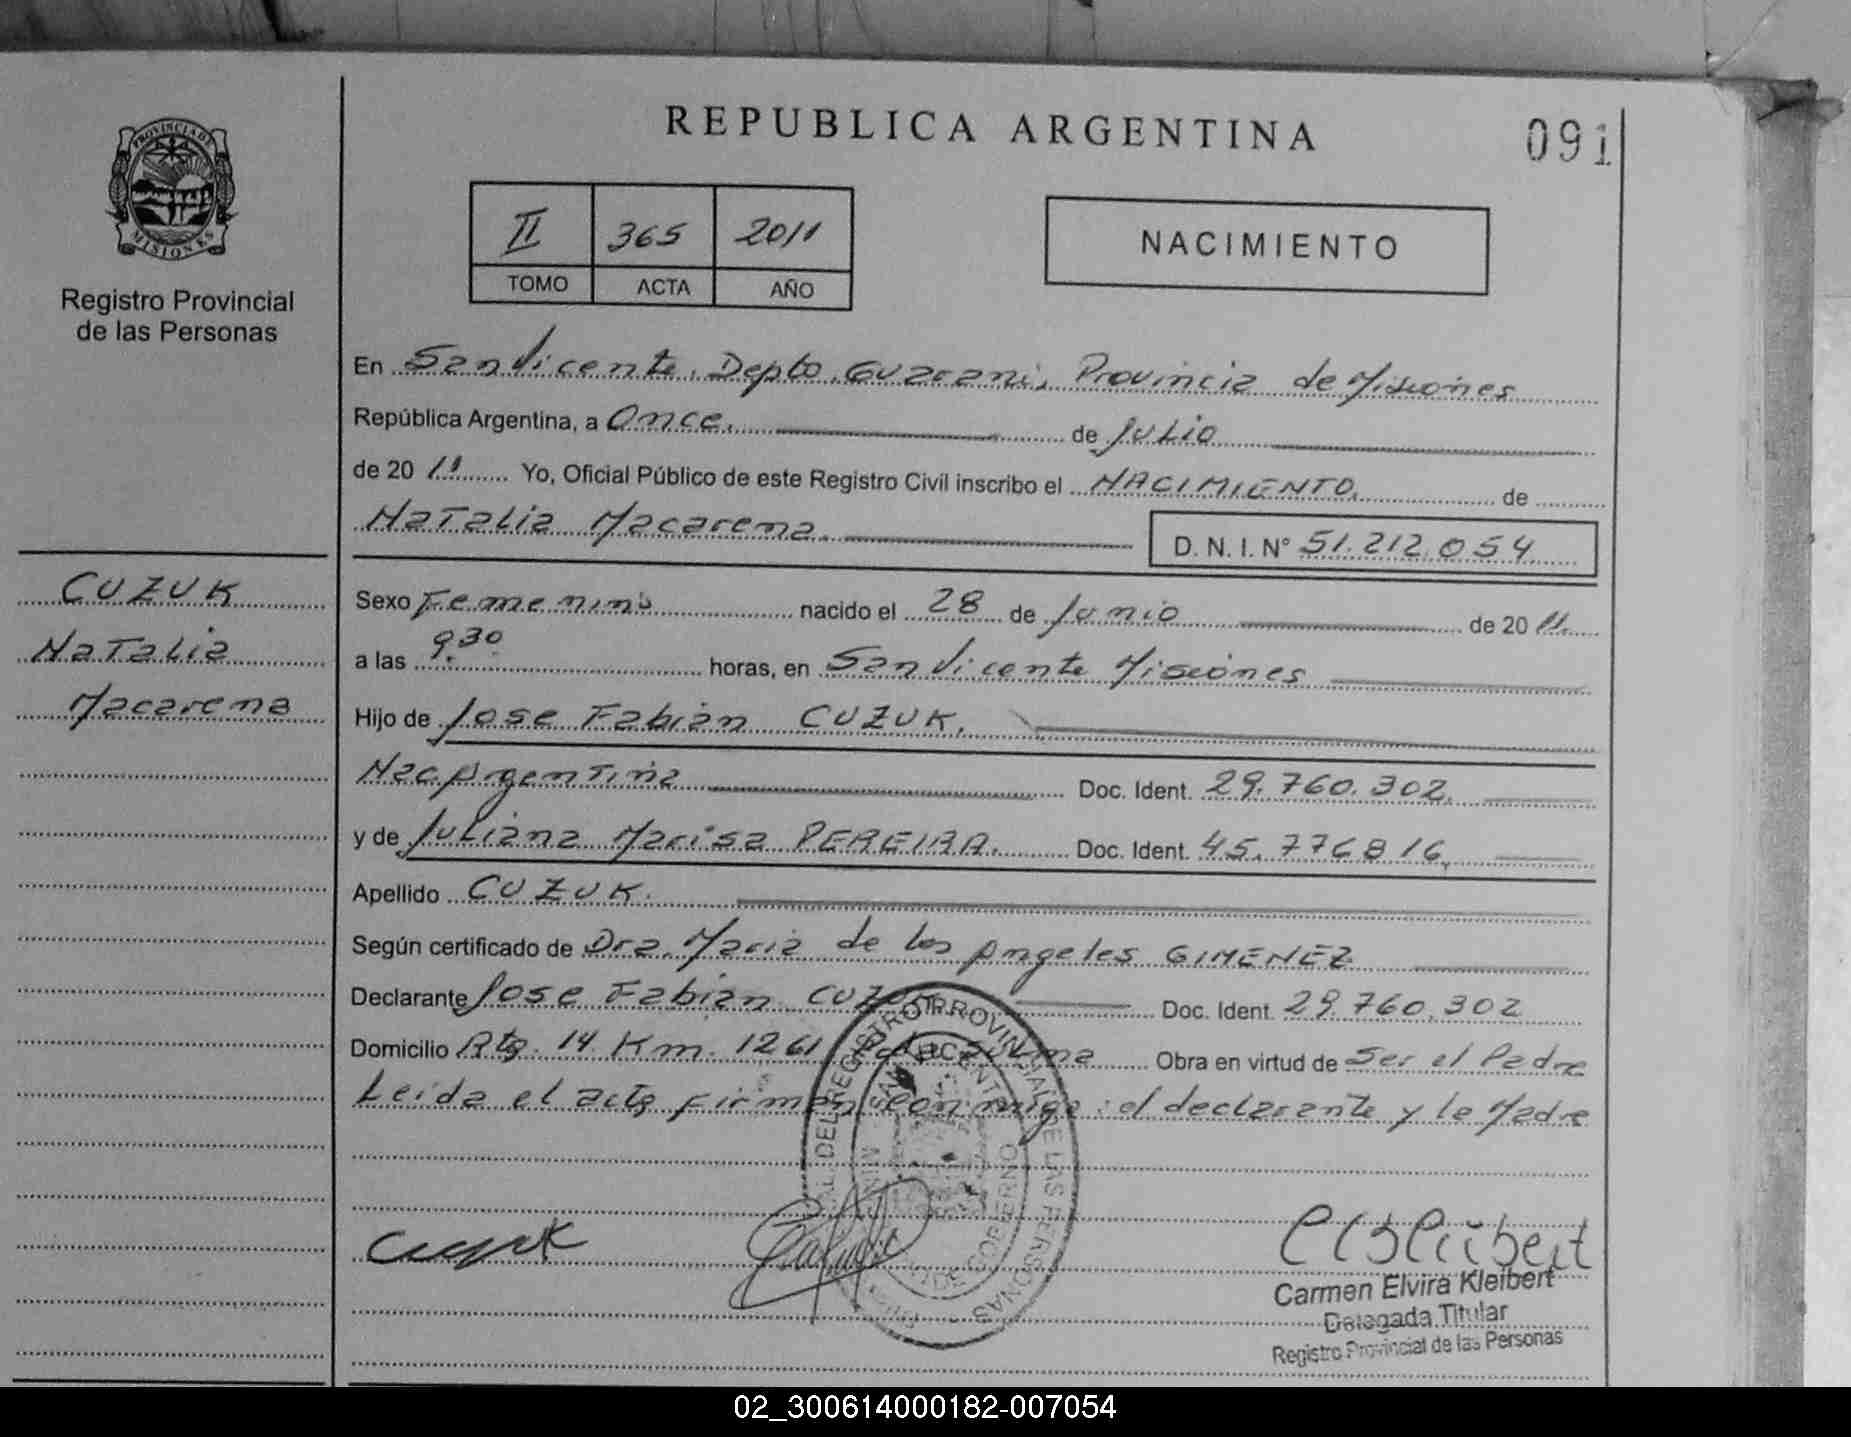 REPUBLICA ARGENTINA
091
PROVINCIA DE
MISIONES
Registro Provincial
de las Personas
II 365 2011
TOMO ACTA AÑO
NACIMIENTO
En San Vicente, Depto. Guarani, Provincia de Misiones
República Argentina, a Once. de Julio
de 20 11 Yo, Oficial Público de este Registro Civil inscribo el NACIMIENTO. de
Natalia Macarena. D. N. I. N° 51.212.054
CUZUK
Natalia
Macarena
Sexo Femenino nacido el 28 de Junio de 20 11.
a las 9.30 horas, en San Vicente Misiones
Hijo de Jose Fabian CUZUK.
Nac Argentina Doc. Ident. 29.760.302.
y de Juliana Marisa PEREIRA. Doc. Ident. 45.776816,
Apellido CUZUK.
Según certificado de Dra. Maria de los Angeles GIMENEZ
Declarante Jose Fabian CUZUK Doc. Ident. 29.760.302
Domicilio Rta. 14 Km. 1261 Obra en virtud de Ser el Padre
Leida el acta firman conmigo: el declarante y la Madre
DEL REGISTRO PROVINCIAL DE LAS PERSONAS
SAN VICENTE
GOBERNO
Carmen Elvira Kleibert
Delegada Titular
Registro Provincial de las Personas
02_300614000182-007054